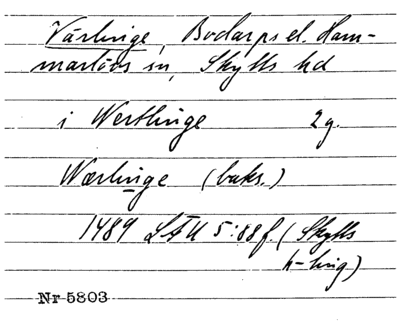 Värlinge, Bodarps el. Ham-
marlövs sn, Skytts hd
i Werthinge 2g.
Wærlinge (baks.)
1489 LÄU 5:88f. (Skytts
h-ting)
Nr 5803